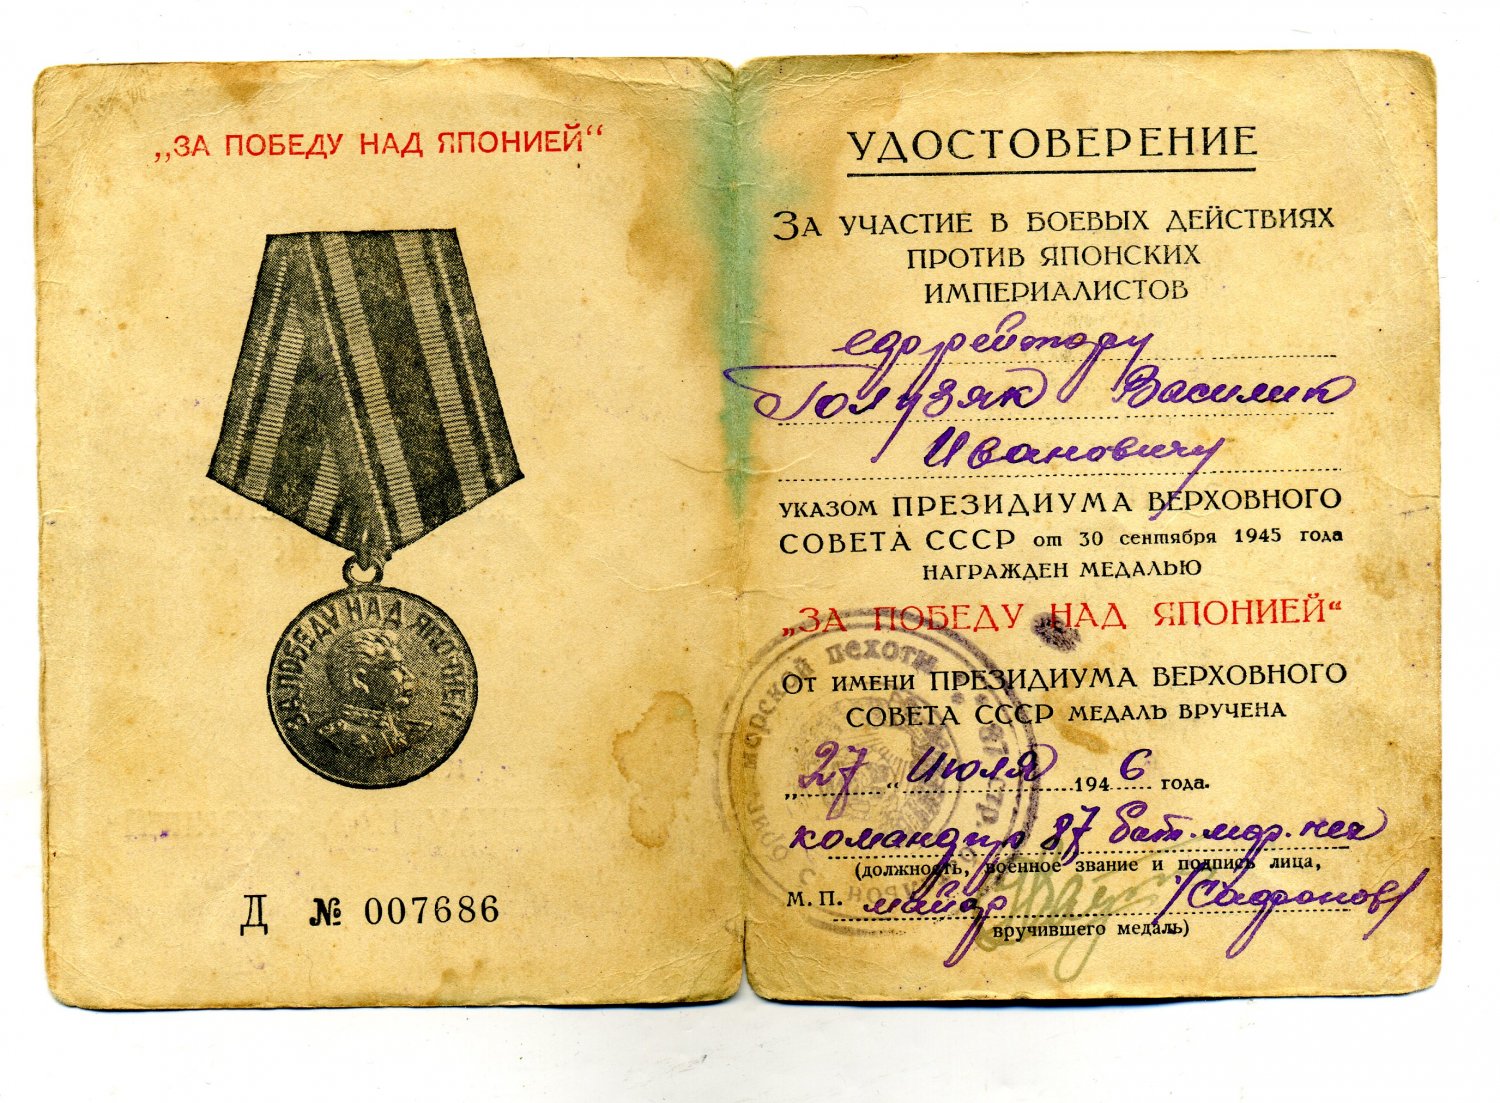 „ЗА ПОБЕДУ НАД ЯПОНИЕЙ“
ЗА ПОБЕДУ НАД ЯПОНИЕЙ
Д № 007686
УДОСТОВЕРЕНИЕ
ЗА УЧАСТИЕ В БОЕВЫХ ДЕЙСТВИЯХ
ПРОТИВ ЯПОНСКИХ
ИМПЕРИАЛИСТОВ
ефрейтору
Голузяк Василию
Ивановичу
УКАЗОМ ПРЕЗИДИУМА ВЕРХОВНОГО
СОВЕТА СССР от 30 сентября 1945 года
НАГРАЖДЕН МЕДАЛЬЮ
„ЗА ПОБЕДУ НАД ЯПОНИЕЙ“
ОТ ИМЕНИ ПРЕЗИДИУМА ВЕРХОВНОГО
СОВЕТА СССР МЕДАЛЬ ВРУЧЕНА
„27“ Июля 1946 года.
командир 87 бат. мор. пех
(должность, военное звание и подпись лица,
М. П. майор /Сафронов/
вручившего медаль)
морской пехоты